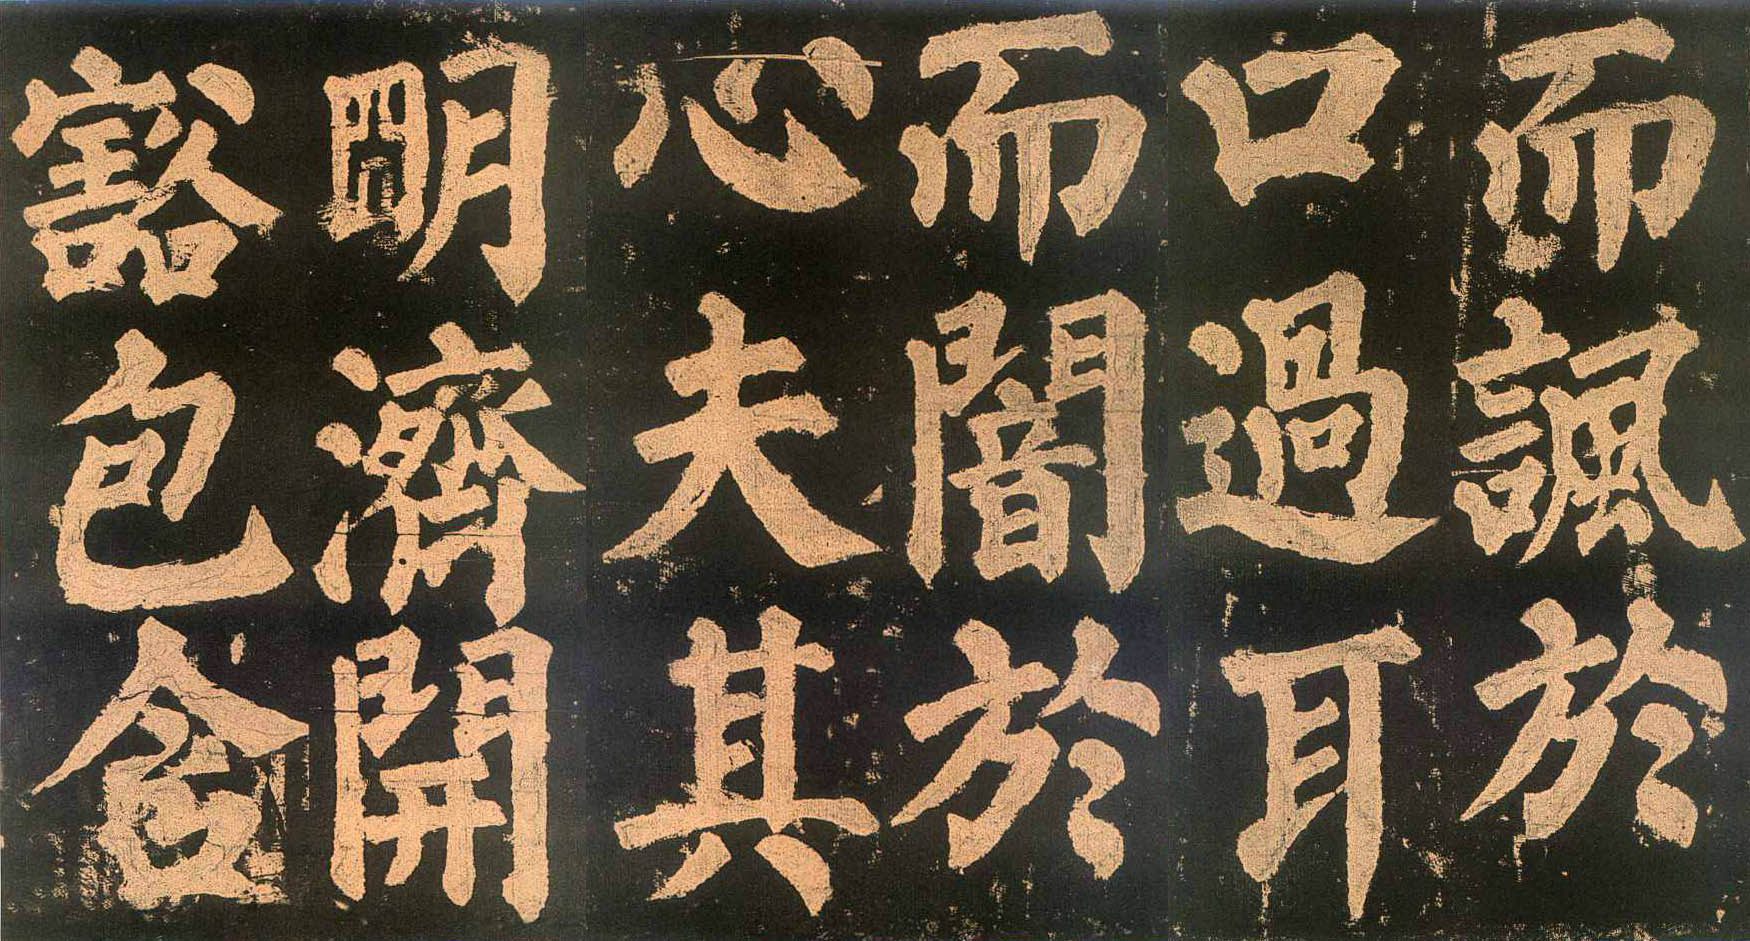 而諷於
口過耳
而闇於
心夫其
明濟開
豁包含